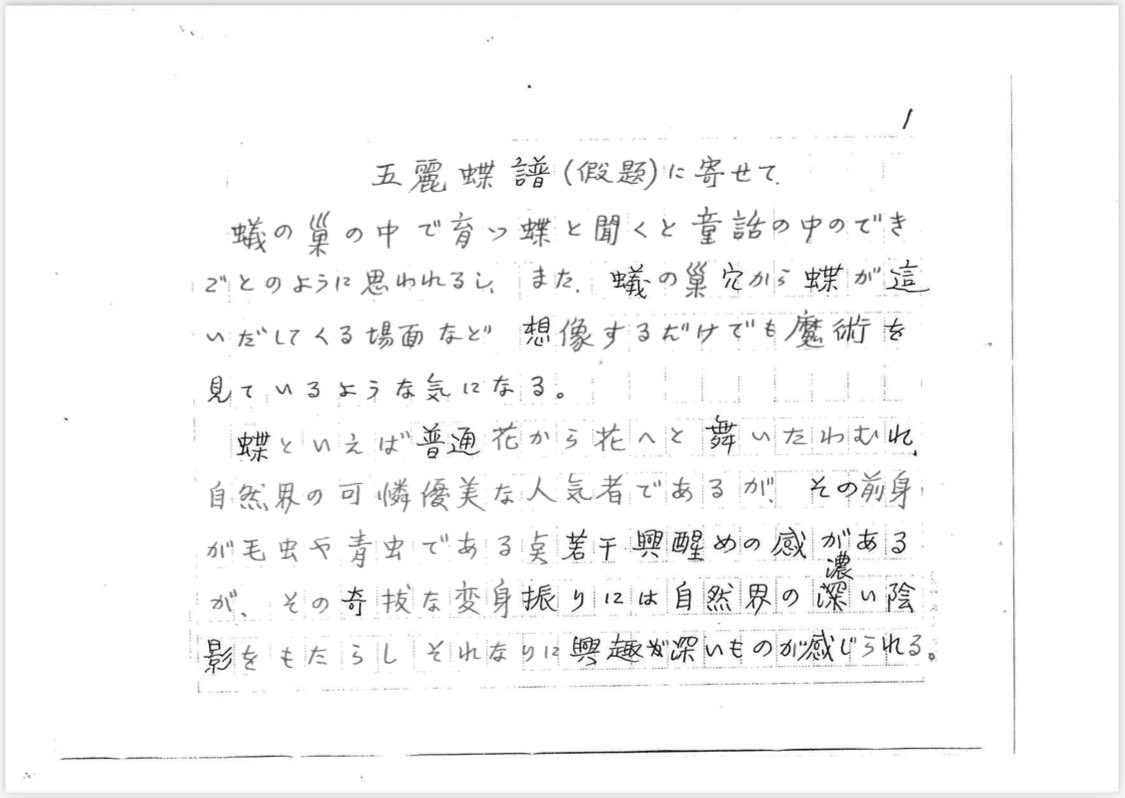 1
五麗蝶譜(假題)に寄せて.
蟻の巣の中で育つ蝶と聞くと童話の中のでき
ごとのように思われるし、また、蟻の巣穴から蝶が這
いだしてくる場面など想像するだけでも魔術を
見ているような気になる。
蝶といえば普通花から花へと舞いたわむれ、
自然界の可憐優美な人気者であるが、その前身
が毛虫や青虫である点若干興醒めの感がある
濃
が、その奇抜な変身振りには自然界の深い陰
影をもたらしそれなりに興趣が深いものが感じられる。